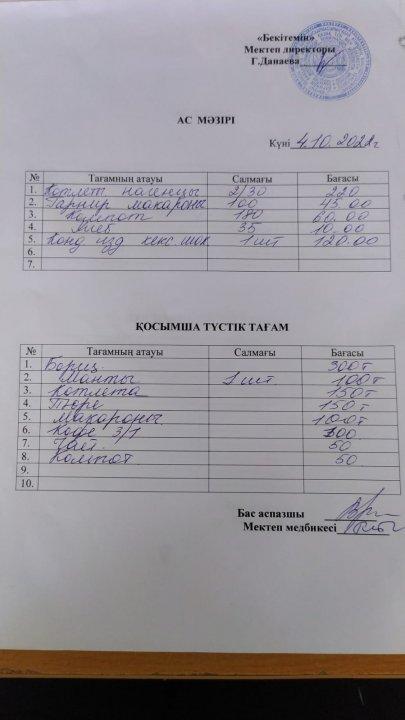 «Бекітемін»
Мектеп директоры
Г.Данаева
АС МӘЗІРІ
Күні 4.10.2022г
№ Тағамның атауы Салмағы Бағасы
1. Котлет 2/30 220
2. Гарнир макароны 100 45.00
3. Компот 180 60.00
4. Хлеб 35 10.00
5. Конд изд кекс шок 1 шт 120.00
6.
7.
ҚОСЫМША ТҮСТІК ТАҒАМ
№ Тағамның атауы Салмағы Бағасы
1. Борщ 300т
2. Манты 1 шт 100т
3. Котлета 150т
4. Пюре 150т
5. Макароны 100т
6. Кофе 3/1 100
7. Чай 50
8. Компот 50
9.
10.
Бас аспазшы
Мектеп медбикесі